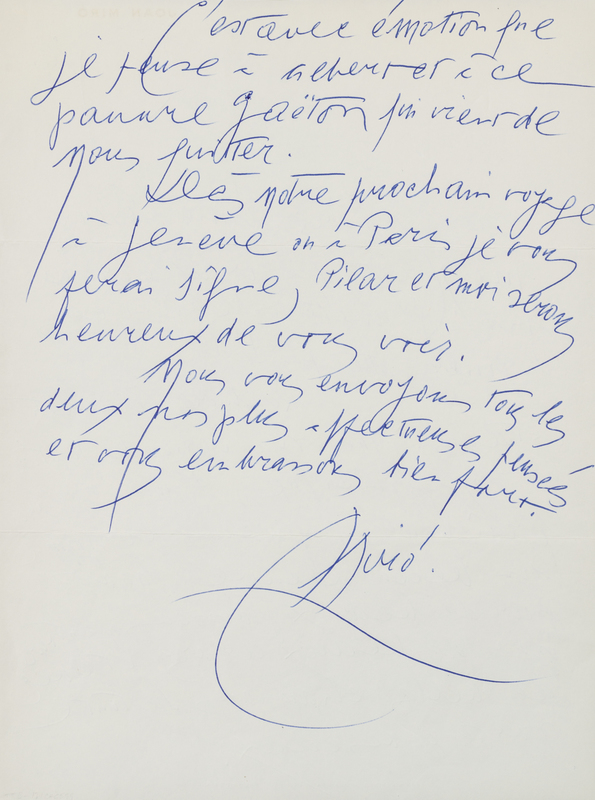 C'est avec émotion que
je pense à Hebert et à ce
pauvre Gaëton qui vient de
nous quitter.
Dès notre prochain voyage
à Jenève ou à Paris je vous
ferai signe, Pilar et moi serons
heureux de vous voir.
Nous vous envoyons tous les
deux nos plus affectueuses pensées
et vous embrassons bien fort.
Miró.